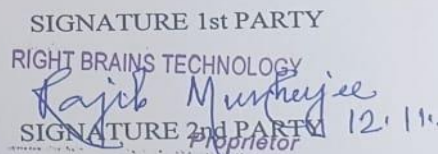 SIGNATURE 1st PARTY
RIGHT BRAINS TECHNOLOGY
Rajib Mukherjee
SIGNATURE 2nd PARTY 12.11.
Proprietor